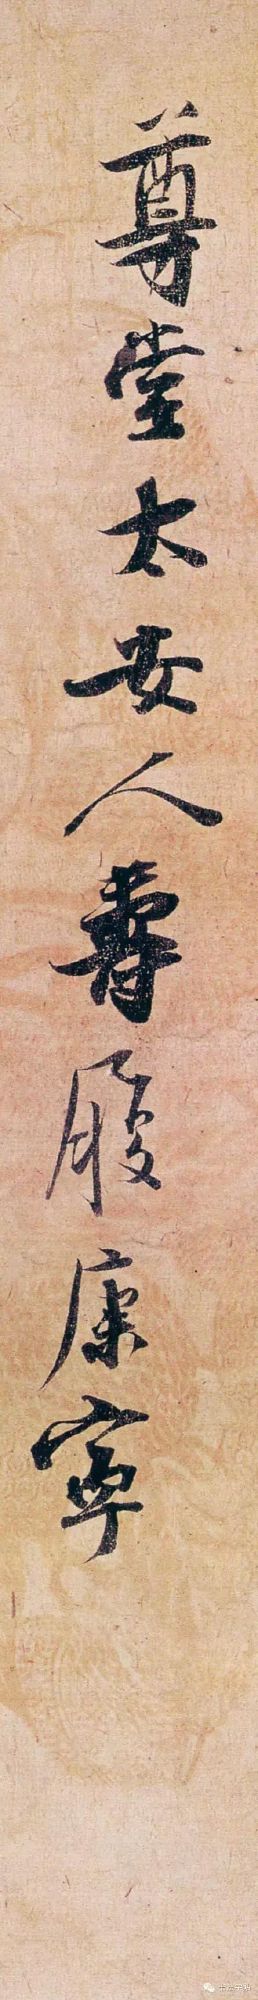 尊堂太安人壽履康寧